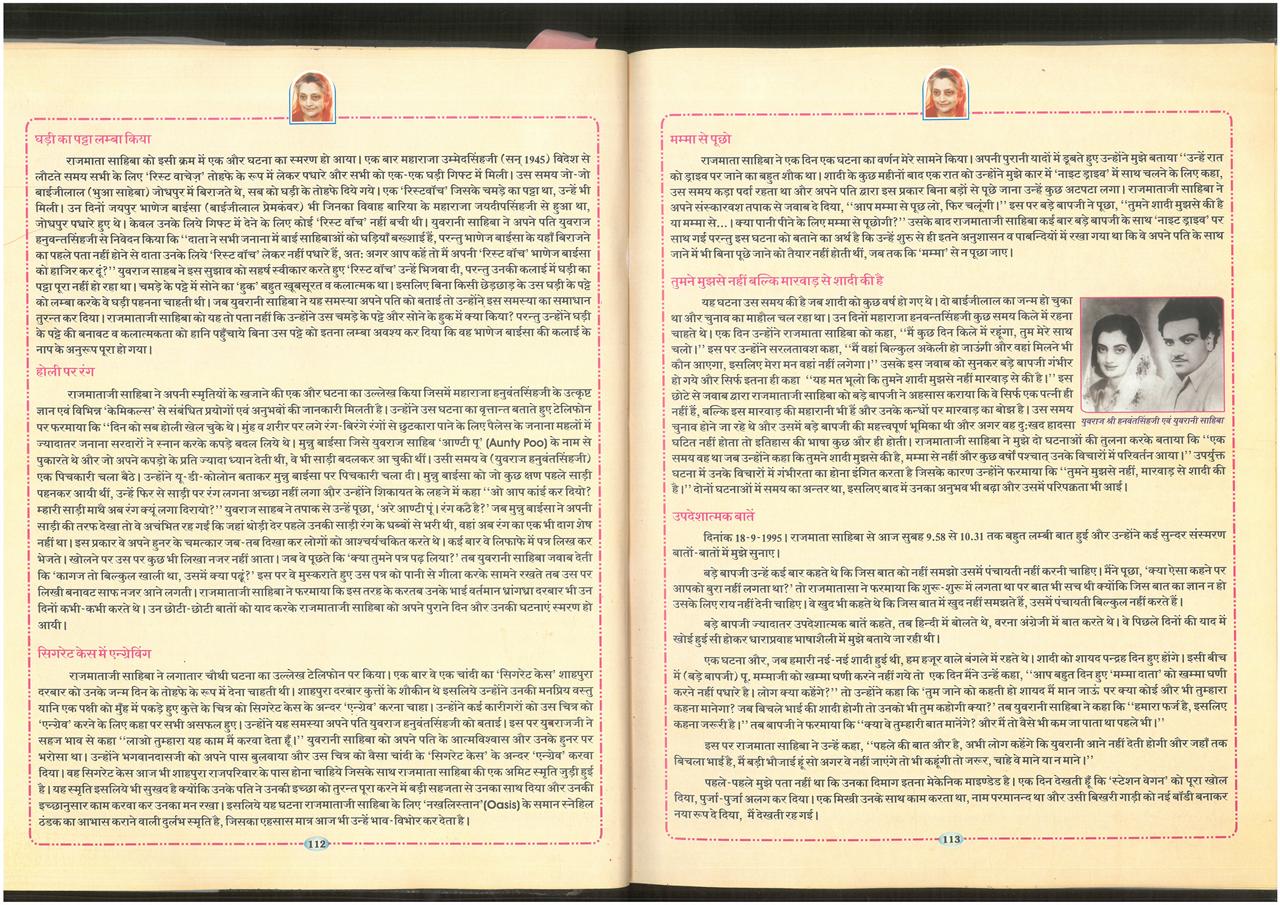 घड़ी का पट्टा लम्बा किया
राजमाता साहिबा को इसी क्रम में एक और घटना का स्मरण हो आया। एक बार महाराजा उम्मेदसिंहजी (सन् 1945) विदेश से
लौटते समय सभी के लिए ‘रिस्ट वाचेज़’ तोहफे के रूप में लेकर पधारे और सभी को एक-एक घड़ी गिफ्ट में मिली। उस समय जो-जो
बाईजीलाल (भुआ साहेबा) जोधपुर में बिराजते थे, सब को घड़ी के तोहफे दिये गये। एक ‘रिस्टवॉच’ जिसके चमड़े का पट्टा था, उन्हें भी
मिली। उन दिनों जयपुर भाणेज बाईसा (बाईजीलाल प्रेमकंवर) भी जिनका विवाह बारिया के महाराजा जयदीपसिंहजी से हुआ था,
जोधपुर पधारे हुए थे। केवल उनके लिये गिफ्ट में देने के लिए कोई ‘रिस्ट वॉच’ नहीं बची थी। युवरानी साहिबा ने अपने पति युवराज
हनुवन्तसिंहजी से निवेदन किया कि ‘‘दाता ने सभी जनाना में बाई साहिबाओं को घड़ियाँ बख्शाई हैं, परन्तु भाणेज बाईसा के यहाँ बिराजने
का पहले पता नहीं होने से दाता उनके लिये ‘रिस्ट वॉच’ लेकर नहीं पधारे हैं, अत: अगर आप कहें तो मैं अपनी ‘रिस्ट वॉच’ भाणेज बाईसा
को हाजिर कर दूं?’’ युवराज साहब ने इस सुझाव को सहर्ष स्वीकार करते हुए ‘रिस्ट वॉच’ उन्हें भिजवा दी, परन्तु उनकी कलाई में घड़ी का
पट्टा पूरा नहीं हो रहा था। चमड़े के पट्टे में सोने का ‘हुक’ बहुत खूबसूरत व कलात्मक था। इसलिए बिना किसी छेड़छाड़ के उस घड़ी के पट्टे
को लम्बा करके वे घड़ी पहनना चाहती थी। जब युवरानी साहिबा ने यह समस्या अपने पति को बताई तो उन्होंने इस समस्या का समाधान
तुरन्त कर दिया। राजमाता साहिबा को यह तो पता नहीं कि उन्होंने उस चमड़े के पट्टे और सोने के हुक में क्या किया? परन्तु उन्होंने घड़ी
के पट्टे की बनावट व कलात्मकता को हानि पहुँचाये बिना उस पट्टे को इतना लम्बा अवश्य कर दिया कि वह भाणेज बाईसा की कलाई के
नाप के अनुरूप पूरा हो गया।
होली पर रंग
राजमाता साहिबा ने अपनी स्मृतियों के खजाने की एक और घटना का उल्लेख किया जिसमें महाराजा हनुवंतसिंहजी के उत्कृष्ट
ज्ञान एवं विभिन्न ‘केमिकल्स’ से संबंधित प्रयोगों एवं अनुभवों की जानकारी मिलती है। उन्होंने उस घटना का वृत्तान्त बताते हुए टेलिफोन
पर फरमाया कि ‘‘दिन को सब होली खेल चुके थे। मुंह व शरीर पर लगे रंग-बिरंगे रंगों से छुटकारा पाने के लिए पेलेस के जनाना महलों में
ज्यादातर जनाना सरदारों ने स्नान करके कपड़े बदल लिये थे। मुन्नु बाईसा जिसे युवराज साहिब ‘आण्टी पू’ (Aunty Poo) के नाम से
पुकारते थे और जो अपने कपड़ो के प्रति ज्यादा ध्यान देती थी, वे भी साड़ी बदलकर आ चुकी थीं। उसी समय वे (युवराज हनुवंतसिंहजी)
एक पिचकारी चला बैठे। उन्होंने यू-डी-कोलोन बताकर मुन्नु बाईसा पर पिचकारी चला दी। मुन्नु बाईसा को जो कुछ क्षण पहले साड़ी
पहनकर आयी थीं, उन्हें फिर से साड़ी पर रंग लगना अच्छा नहीं लगा और उन्होंने शिकायत के लहजे में कहा ‘‘ओ आप कांई कर दियो?
म्हारी साड़ी माथै अब रंग क्यूं लगा दिरायो?’’ युवराज साहब ने तपाक से उन्हें पूछा, ‘अरे आण्टी पूं। रंग कठै है?’ जब मुन्नु बाईसा ने अपनी
साड़ी की तरफ देखा तो वे अचंभित रह गई कि जहां थोड़ी देर पहले उनकी साड़ी रंग के धब्बों से भरी थी, वहां अब रंग का एक भी दाग शेष
नहीं था। इस प्रकार वे अपने हुनर के चमत्कार जब-तब दिखा कर लोगों को आश्चर्यचकित करते थे। कई बार वे लिफाफे में पत्र लिख कर
भेजते। खोलने पर उस पर कुछ भी लिखा नजर नहीं आता। जब वे पूछते कि ‘क्या तुमने पत्र पढ़ लिया?’ तब युवरानी साहिबा जवाब देती
कि ‘कागज तो बिल्कुल खाली था, उसमें क्या पढूं?’ इस पर वे मुस्कराते हुए उस पत्र को पानी से गीला करके सामने रखते तब उस पर
लिखी बनावट साफ नजर आने लगती। राजमाता साहिबा ने फरमाया कि इस तरह के करतब उनके भाई वर्तमान ध्रांगध्रा दरबार भी उन
दिनों कभी-कभी करते थे। उन छोटी-छोटी बातों को याद करके राजमाताजी साहिबा को अपने पुराने दिन और उनकी घटनाएं स्मरण हो
आयी।
सिगरेट केस में एन्ग्रेविंग
राजमाताजी साहिबा ने लगातार चौथी घटना का उल्लेख टेलिफोन पर किया। एक बार वे एक चांदी का ‘सिगरेट केस’ शाहपुरा
दरबार को उनके जन्म दिन के तोहफे के रूप में देना चाहती थी। शाहपुरा दरबार कुत्तों के शौकीन थे इसलिये उन्होंने उनकी मनप्रिय वस्तु
यानि एक पक्षी को मुँह में पकड़े हुए कुत्ते के चित्र को सिगरेट केस के अन्दर ‘एन्ग्रेव’ करना चाहा। उन्होंने कई कारीगरों को उस चित्र को
‘एन्ग्रेव’ करने के लिए कहा पर सभी असफल हुए। उन्होंने यह समस्या अपने पति युवराज हनुवंतसिंहजी को बताई। इस पर युबराजजी ने
सहज भाव से कहा ‘‘लाओ तुम्हारा यह काम मैं करवा देता हूँ।’’ युवरानी साहिबा को अपने पति के आत्मविश्वास और उनके हुनर पर
भरोसा था। उन्होंने भगवानदासजी को अपने पास बुलवाया और उस चित्र को वैसा चांदी के ‘सिगरेट केस’ के अन्दर ‘एन्ग्रेव’ करवा
दिया। वह सिगरेट केस आज भी शाहपुरा राजपरिवार के पास होना चाहिये जिसके साथ राजमाता साहिबा की एक अमिट स्मृति जुड़ी हुई
है। यह स्मृति इसलिये भी सुखद है क्योंकि उनके पति ने उनकी इच्छा को तुरन्त पूरा करने में बड़ी सहजता से उनका साथ दिया और उनकी
इच्छानुसार काम करवा कर उनका मन रखा। इसलिये यह घटना राजमाताजी साहिबा के लिए ‘नखलिस्तान’(Oasis) के समान स्नेहिल
ठंडक का आभास कराने वाली दुर्लभ स्मृति है, जिसका एहसास मात्र आज भी उन्हें भाव-विभोर कर देता है।
112
मम्मा से पूछो
राजमाता साहिबा ने एक दिन एक घटना का वर्णन मेरे सामने किया। अपनी पुरानी यादों में डूबते हुए उन्होंने मुझे बताया ‘‘उन्हें रात
को ड्राइव पर जाने का बहुत शौक था। शादी के कुछ महीनों बाद एक रात को उन्होंने मुझे कार में ‘नाइट ड्राइव’ में साथ चलने के लिए कहा,
उस समय कड़ा पर्दा रहता था और अपने पति द्वारा इस प्रकार बिना बड़ों से पूछे जाना उन्हें कुछ अटपटा लगा। राजमाताजी साहिबा ने
अपने संस्कारवश तपाक से जवाब दे दिया, ‘‘आप मम्मा से पूछ लो, फिर चलूंगी।’’ इस पर बड़े बापजी ने पूछा, ‘‘तुमने शादी मुझसे की है
या मम्मा से...। क्या पानी पीने के लिए मम्मा से पूछोगी?’’ उसके बाद राजमाताजी साहिबा कई बार बड़े बापजी के साथ ‘नाइट ड्राइव’ पर
साथ गई परन्तु इस घटना को बताने का अर्थ है कि उन्हें शुरु से ही इतने अनुशासन व पाबन्दियों में रखा गया था कि वे अपने पति के साथ
जाने में भी बिना पूछे जाने को तैयार नहीं होती थीं, जब तक कि ‘मम्मा’ से न पूछा जाए।
तुमने मुझसे नहीं बल्कि मारवाड़ से शादी की है
यह घटना उस समय की है जब शादी को कुछ वर्ष हो गए थे। दो बाईजीलाल का जन्म हो चुका
था और चुनाव का माहौल चल रहा था। उन दिनों महाराजा हनवन्तसिंहजी कुछ समय किले में रहना
चाहते थे। एक दिन उन्होंने राजमाता साहिबा को कहा, ‘‘मैं कुछ दिन किले में रहूंगा, तुम मेरे साथ
चलो।’’ इस पर उन्होंने सरलतावश कहा, ‘‘मैं वहां बिल्कुल अकेली हो जाऊंगी और वहां मिलने भी
कौन आएगा, इसलिए मेरा मन वहां नहीं लगेगा।’’ उसके इस जवाब को सुनकर बड़े बापजी गंभीर
हो गये और सिर्फ इतना ही कहा ‘‘यह मत भूलो कि तुमने शादी मुझसे नहीं मारवाड़ से की है।’’ इस
छोटे से जवाब द्वारा राजमाताजी साहिबा को बड़े बापजी ने अहसास कराया कि वे सिर्फ एक पत्नी ही
नहीं हैं, बल्कि इस मारवाड़ की महारानी भी हैं और उनके कन्धों पर मारवाड़ का बोझ है। उस समय
चुनाव होने जा रहे थे और उसमें बड़े बापजी की महत्त्वपूर्ण भूमिका थी और अगर वह दु:खद हादसा
युवराज श्री हनवंतसिंहजी एवं युवरानी साहिबा
घटित नहीं होता तो इतिहास की भाषा कुछ और ही होती। राजमाताजी साहिबा ने मुझे दो घटनाओं की तुलना करके बताया कि ‘‘एक
समय वह था जब उन्होंने कहा कि तुमने शादी मुझसे की है, मम्मा से नहीं और कुछ वर्षों पश्चात् उनके विचारों में परिवर्तन आया।’’ उपर्युक्त
घटना में उनके विचारों में गंभीरता का होना इंगित करता है जिसके कारण उन्होंने फरमाया कि ‘‘तुमने मुझसे नहीं, मारवाड़ से शादी की
है।’’ दोनों घटनाओं में समय का अन्तर था, इसलिए बाद में उनका अनुभव भी बढ़ा और उसमें परिपक्वता भी आई।
उपदेशात्मक बातें
दिनांक 18-9-1995। राजमाता साहिबा से आज सुबह 9.58 से 10.31 तक बहुत लम्बी बात हुई और उन्होंने कई सुन्दर संस्मरण
बातों-बातों में मुझे सुनाए।
बड़े बापजी उन्हें कई बार कहते थे कि जिस बात को नहीं समझो उसमें पंचायती नहीं करनी चाहिए। मैंने पूछा, ‘क्या ऐसा कहने पर
आपको बुरा नहीं लगता था?’ तो राजमातासा ने फरमाया कि शुरू-शुरू में लगता था पर बात भी सच थी क्योंकि जिस बात का ज्ञान न हो
उसके लिए राय नहीं देनी चाहिए। वे खुद भी कहते थे कि जिस बात में खुद नहीं समझते हैं, उसमें पंचायती बिल्कुल नहीं करते हैं।
बड़े बापजी ज्यादातर उपदेशात्मक बातें कहते, तब हिन्दी में बोलते थे, वरना अंग्रेजी में बात करते थे। वे पिछले दिनों की याद में
खोई हुई सी होकर धाराप्रवाह भाषाशैली में मुझे बताये जा रही थी।
एक घटना और, जब हमारी नई-नई शादी हुई थी, हम हजूर वाले बंगले में रहते थे। शादी को शायद पन्द्रह दिन हुए होंगे। इसी बीच
में (बड़े बापजी) पू. मम्माजी को खम्मा घणी करने नहीं गये तो एक दिन मैंने उन्हें कहा, ‘‘आप बहुत दिन हुए ‘मम्मा दाता’ को खम्मा घणी
करने नहीं पधारे है। लोग क्या कहेंगे?’’ तो उन्होंने कहा कि ‘तुम जाने को कहती हो शायद मैं मान जाऊं पर क्या कोई और भी तुम्हारा
कहना मानेगा? जब बिचले भाई की शादी होगी तो उनको भी तुम कहोगी क्या?’ तब युवरानी साहिबा ने कहा कि ‘‘हमारा फर्ज है, इसलिए
कहना जरूरी है।’’ तब बापजी ने फरमाया कि ‘‘क्या वे तुम्हारी बात मानेंगे? और मैं तो वैसे भी कम जा पाता था पहले भी।’’
इस पर राजमाता साहिबा ने उन्हें कहा, ‘‘पहले की बात और है, अभी लोग कहेंगे कि युवरानी आने नहीं देती होगी और जहाँ तक
बिचला भाई है, मैं बड़ी भौजाई हूं सो अगर वे नहीं जाएंगे तो भी कहूंगी तो जरूर, चाहे वे माने या न माने।’’
पहले-पहले मुझे पता नहीं था कि उनका दिमाग इतना मेकेनिक माइण्डेड है। एक दिन देखती हूँ कि ‘स्टेशन वेगन’ को पूरा खोल
दिया, पुर्जा-पुर्जा अलग कर दिया। एक मिस्त्री उनके साथ काम करता था, नाम परमानन्द था और उसी बिखरी गाड़ी को नई बॉडी बनाकर
नया रूप दे दिया, मैं देखती रह गई।
113